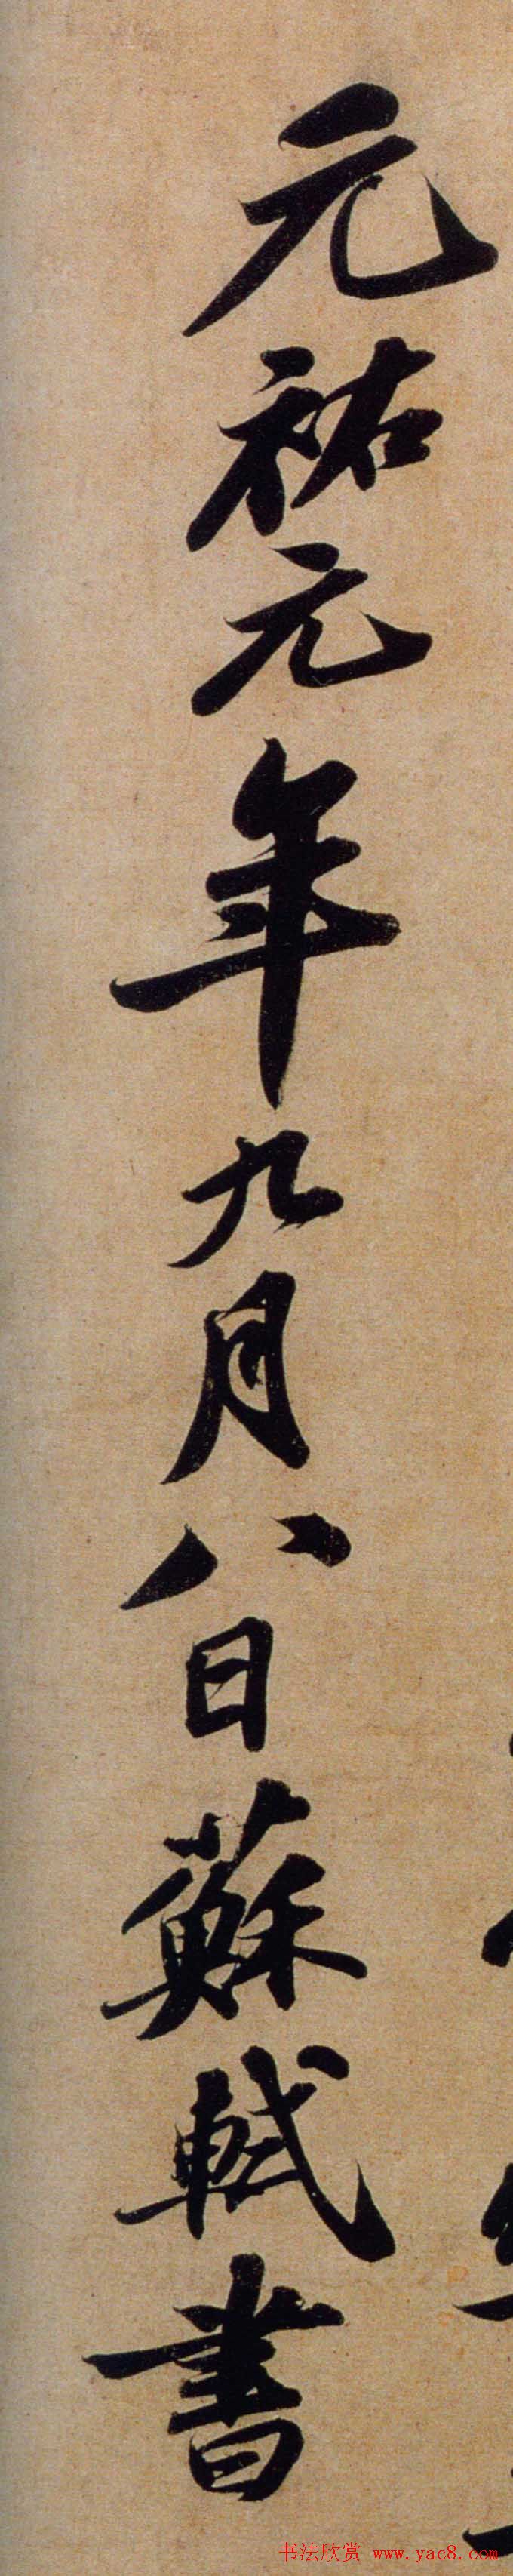 元祐元年九月八日蘇軾書
书法欣赏 www.yac8.com